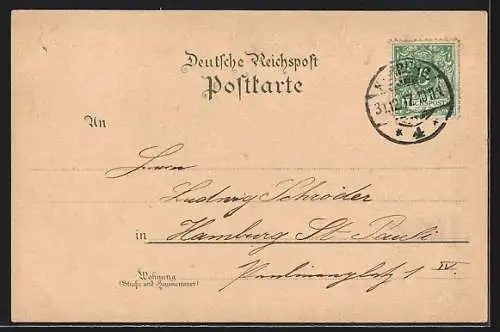 Deutsche Reichspost
Postkarte
5
REICHSPOST
31.12.
* 4 *
An
Herrn
Ludwig Schröder
in Hamburg St. Pauli
Paulinenplatz 1 IV.
Wohnung
(Straße und Hausnummer)